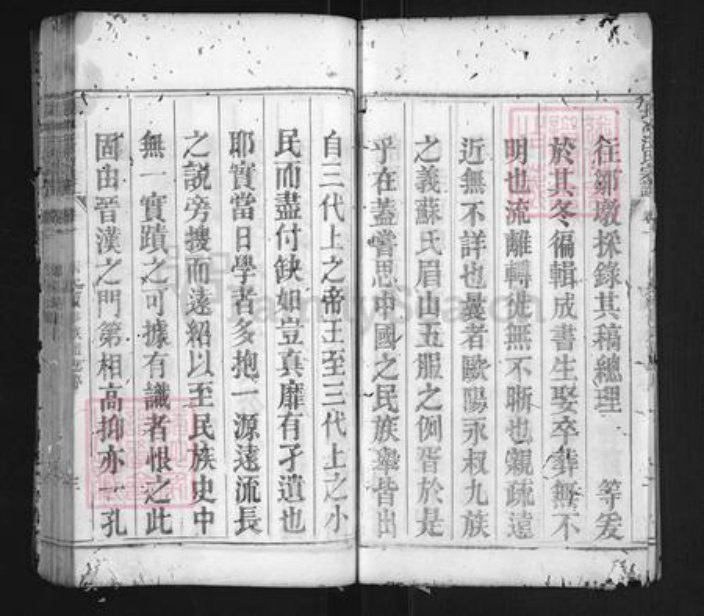 往鄒墩採錄其稿總理　等爰
於其冬徧輯成書生娶卒葬無不
明也流離轉徙無不晰也親疏遠
近無不詳也曩者歐陽永叔九族
之義蘇氏眉山五服之例胥於是
乎在蓋嘗思中國之民族舉皆出
自三代上之帝王至三代上之小
民而盡付缺如豈真靡有孑遺也
耶實當日學者多抱一源遠流長
之説旁搜而遠紹以至民族史中
無一實蹟之可據有識者恨之此
固由晉漢之門第相高抑亦一孔